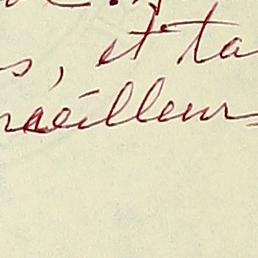 s, et ta
meilleur